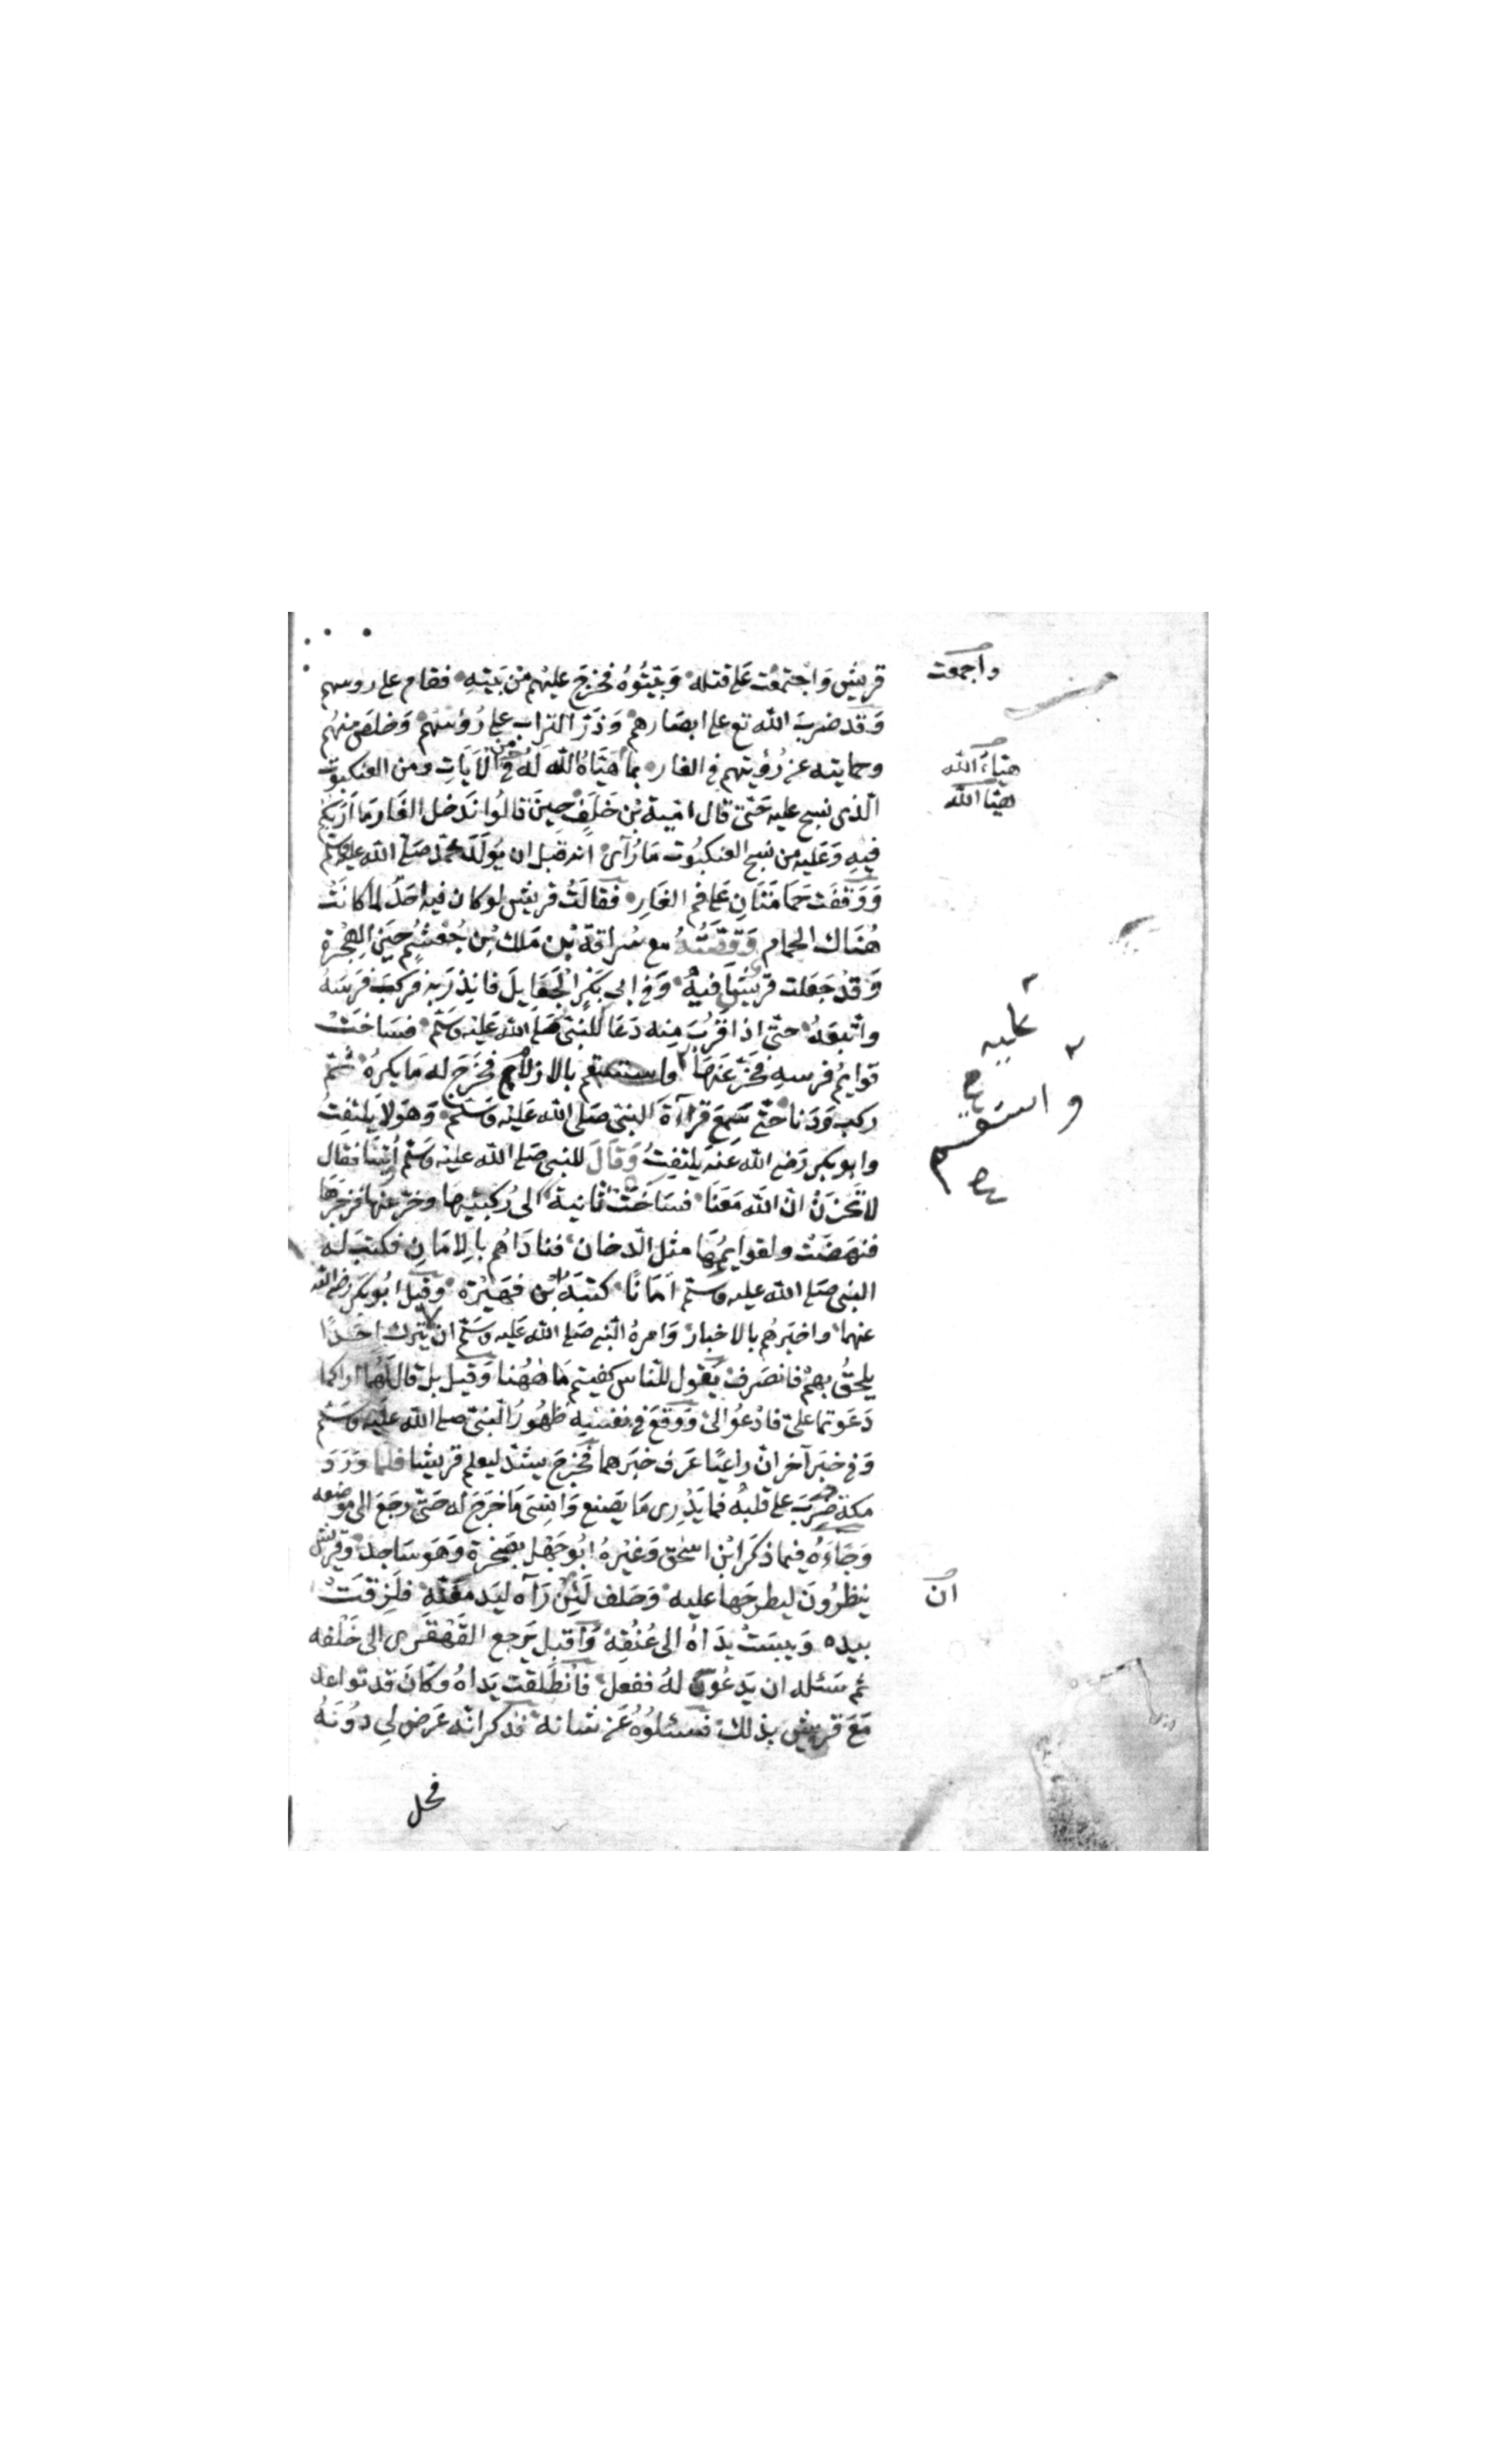 قريش وَاجتمعَت عَلى قتله وَبَيَّتُوُه فخرَج عليْهم مِن بَيتِهِ فقام على روسهم
وَقد ضربَ الله تع على ابصَارهم وَذَرَّ التراب على رُؤسهم وَخلصَ منهُم
وحمايته عن رُؤيتهم فى الغار بما هَيَّاهُ الله لهُ من الاَيَاتِ ومن العنكبوت
الّذى نسج عليه حَتّى قال اميّة بْن خَلَفٍ حِينَ قالُوا نَدخل الغَار مَا اَرَبكم
فيهِ وَعَليه من نسج العنكبُوت مَا رُآى انه قبل ان يُولَدَ محمّد صَلى الله عليه وسلم
وَوَقفَت حَمَامَتَان عَلى فم الغَارِ فقالَتْ قريش لو كان فيه احَدٌ لما كانَتْ
هُنَاك الحمام وَقِصَّتُهُ مع سُراقةَ بْن مَلك بْن جُعشُم حينَ الهِجْرة
وَقدْ جَعَلت قريش فيهْ وَفى ابى بَكْرٍ الجَعَايِلَ فانذرَ بهِ فركبَ فَرَسَهُ
واتّبَعهُ حتّى اذا قرُبَ مِنه دَعَا للنّبى صَلى الله عَليْه وسَلّم فسَاخَتْ
قوايمُ فرسهِ فخَرَّ عَنهَا واستقسم بالازلام فخَرَج له مَا يكرهُ ثُمّ
ركبَ وَدَنا حَتّى سَمِعَ قراءَةَ النبى صَلى الله عَليْه وَسَلّم وَهوَ لا يَلتفتُ
وابو بكر رَضى الله عَنه يلتفِتُ وَقَالَ للنبى صَلى الله عليْه وسَلّم اُتينَا فقال
لا تَحْزَنْ انّ اللهَ مَعَنَا فسَاخَتْ ثانيةً الىَ رُكبتيهَا وخرّ عنها فزَجَرَهَا
فنهَضَتْ ولقوايمُهَا مثل الدّخان فنادَاهُم بالاِمَانِ فكتبَ لَهُ
النبى صَلى الله عليه وسَلّم اَمَانًا كتبَهُ ابْن فهَيْرَة وَقيل ابُو بكر رضى الله
عنهما واخبَرهُم بالاخبار وَامرهُ النّبى صَلى الله عَليه وسَلّم ان لا يترك احَدًا
يلحقُ بهمْ فانصَرفَ يَقول للنّاس كفيتم مَا هٰهُنا وَقيل بل قال لَهُما اراكما
دَعَوتما علىّ فادْعُوا لىْ وَوَقَعَ فى نفسِهِ ظهُورُ النّبىّ صلى الله عَليْه وسَلّم
وَفى خبَر آخر انّ راعيًا عَرف خبَرهما فخَرَج يشتدّ ليعلم قريشا فلما وَرَدَ
مكة ضُرِبَ على قلبهُ فما يَدْرِى مَا يَصنع وَانسِىَ مَا خَرَجَ له حَتّى رَجَعَ الى موضعه
وَجَاءَهُ فيما ذكرَ ابْن اسحٰق وَغيْرهُ ابُو جَهْل بصَخرَة وَهَو سَاجد وَقريش
ينظُرُونَ ليطرحَها عليه وَحَلف لَئِنْ رَآه ليَدمغَنّهُ فلزِقَتْ
بيده وَيبسَتْ يدَاهُ الى عُنُقِهْ وَاَقبل يَرجع القَهْقَرى الى خَلْفه
ثم سَئله ان يَدعُو لهُ ففعل فاُنطَلقت يَداهُ وَكانَ قد تواعد
مَعَ قريش بذلك فسَئلُوُه عَن شانه فذكر انّه عَرَض لى دُونَهُ
فحل
واجمعت
هيّاءَ الله
هيا الله
عليه
واستقسم
صح
ان